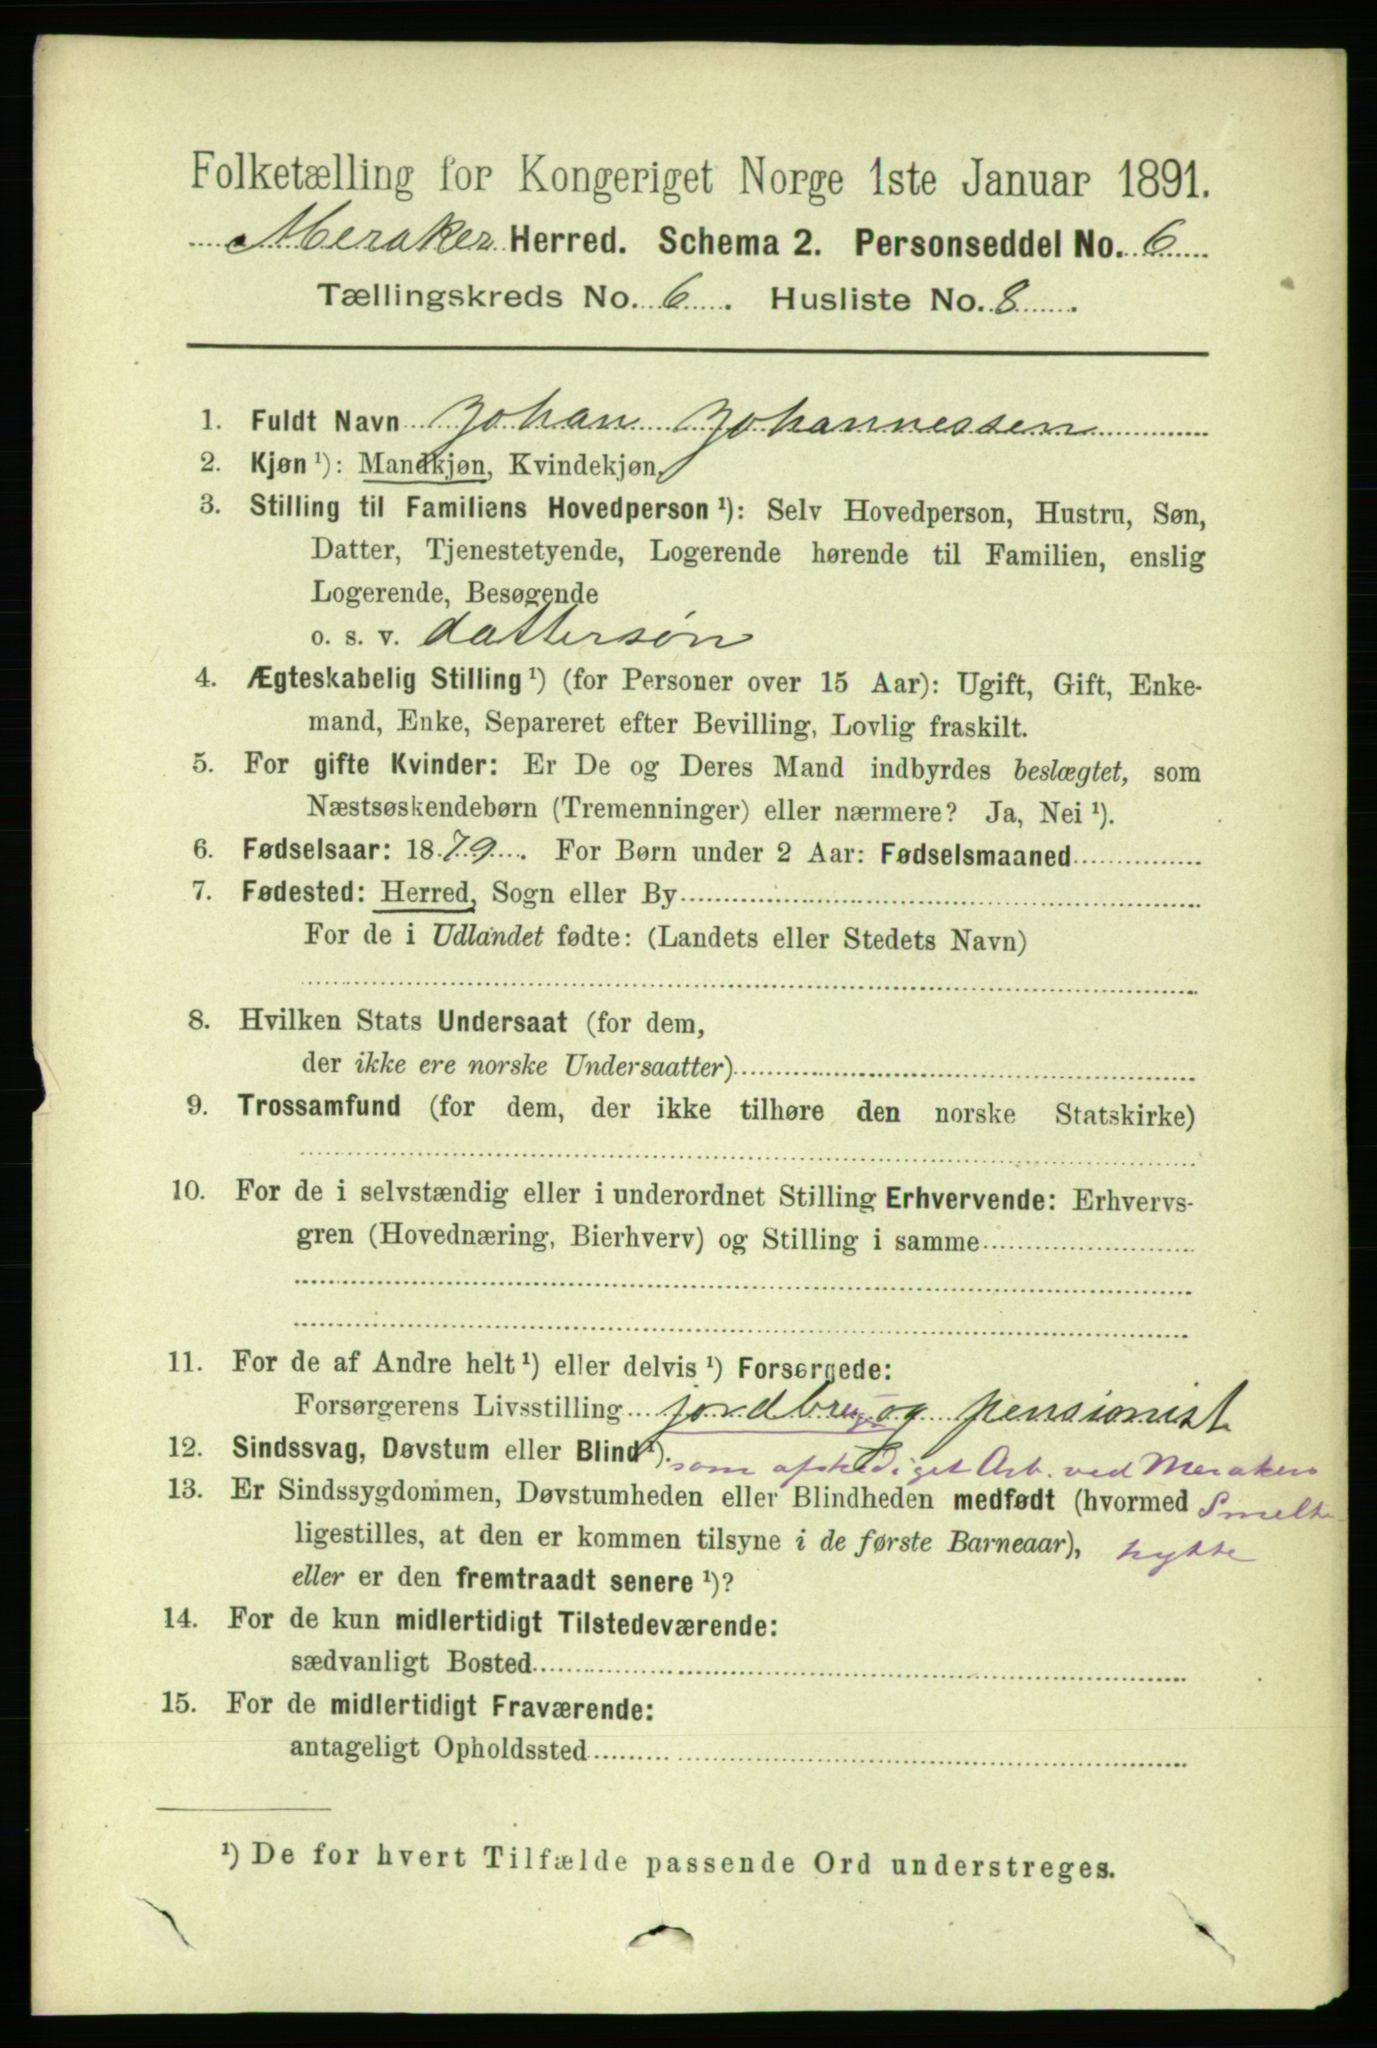 Folketælling for Kongeriget Norge 1ste Januar 1891.
Meraker Herred. Schema 2. Personseddel No. 6
Tællingskreds No. 6. Husliste No. 8.
1. Fuldt Navn Johan Johannessen
2. Kjøn ¹): Mandkjøn, Kvindekjøn.
3. Stilling til Familiens Hovedperson ¹): Selv Hovedperson, Hustru, Søn,
Datter, Tjenestetyende, Logerende hørende til Familien, enslig
Logerende, Besøgende
o. s. v. dattersøn
4. Ægteskabelig Stilling ¹) (for Personer over 15 Aar): Ugift, Gift, Enke-
mand, Enke, Separeret efter Bevilling, Lovlig fraskilt.
5. For gifte Kvinder: Er De og Deres Mand indbyrdes beslægtet, som
Næstsøskendebørn (Tremenninger) eller nærmere? Ja, Nei ¹).
6. Fødselsaar: 1879. For Børn under 2 Aar: Fødselsmaaned
7. Fødested: Herred, Sogn eller By
For de i Udlandet fødte: (Landets eller Stedets Navn)
8. Hvilken Stats Undersaat (for dem,
der ikke ere norske Undersaatter)
9. Trossamfund (for dem, der ikke tilhøre den norske Statskirke)
10. For de i selvstændig eller i underordnet Stilling Erhvervende: Erhvervs-
gren (Hovednæring, Bierhverv) og Stilling i samme
11. For de af Andre helt ¹) eller delvis ¹) Forsørgede:
Forsørgerens Livsstilling jordbrug og pensionist
12. Sindssvag, Døvstum eller Blind ¹). som afskediget Arb. ved Merakers
13. Er Sindssygdommen, Døvstumheden eller Blindheden medfødt (hvormed Smelte
ligestilles, at den er kommen tilsyne i de første Barneaar), hytte
eller er den fremtraadt senere ¹)?
14. For de kun midlertidigt Tilstedeværende:
sædvanligt Bosted
15. For de midlertidigt Fraværende:
antageligt Opholdssted
¹) De for hvert Tilfælde passende Ord understreges.